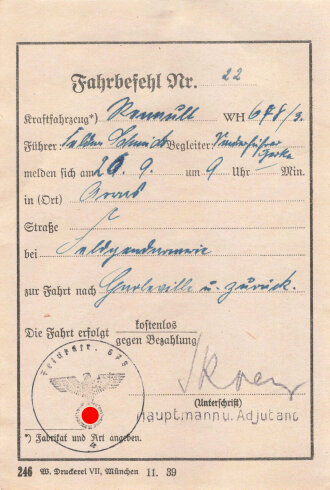 Fahrbefehl Nr. 22
Kraftfahrzeug*) Renault WH 678/3.
Führer: Schmidt Begleiter:
melden sich am 26. 9. um 9 Uhr Min.
in (Ort) Arras
Straße
bei Feldgendarmerie
zur Fahrt nach u. zurück.
Die Fahrt erfolgt kostenlos
gegen Bezahlung
(Unterschrift)
Hauptmann u. Adjutant
*) Fabrikat und Art angeben.
246 W. Druckerei VII, München 11. 39